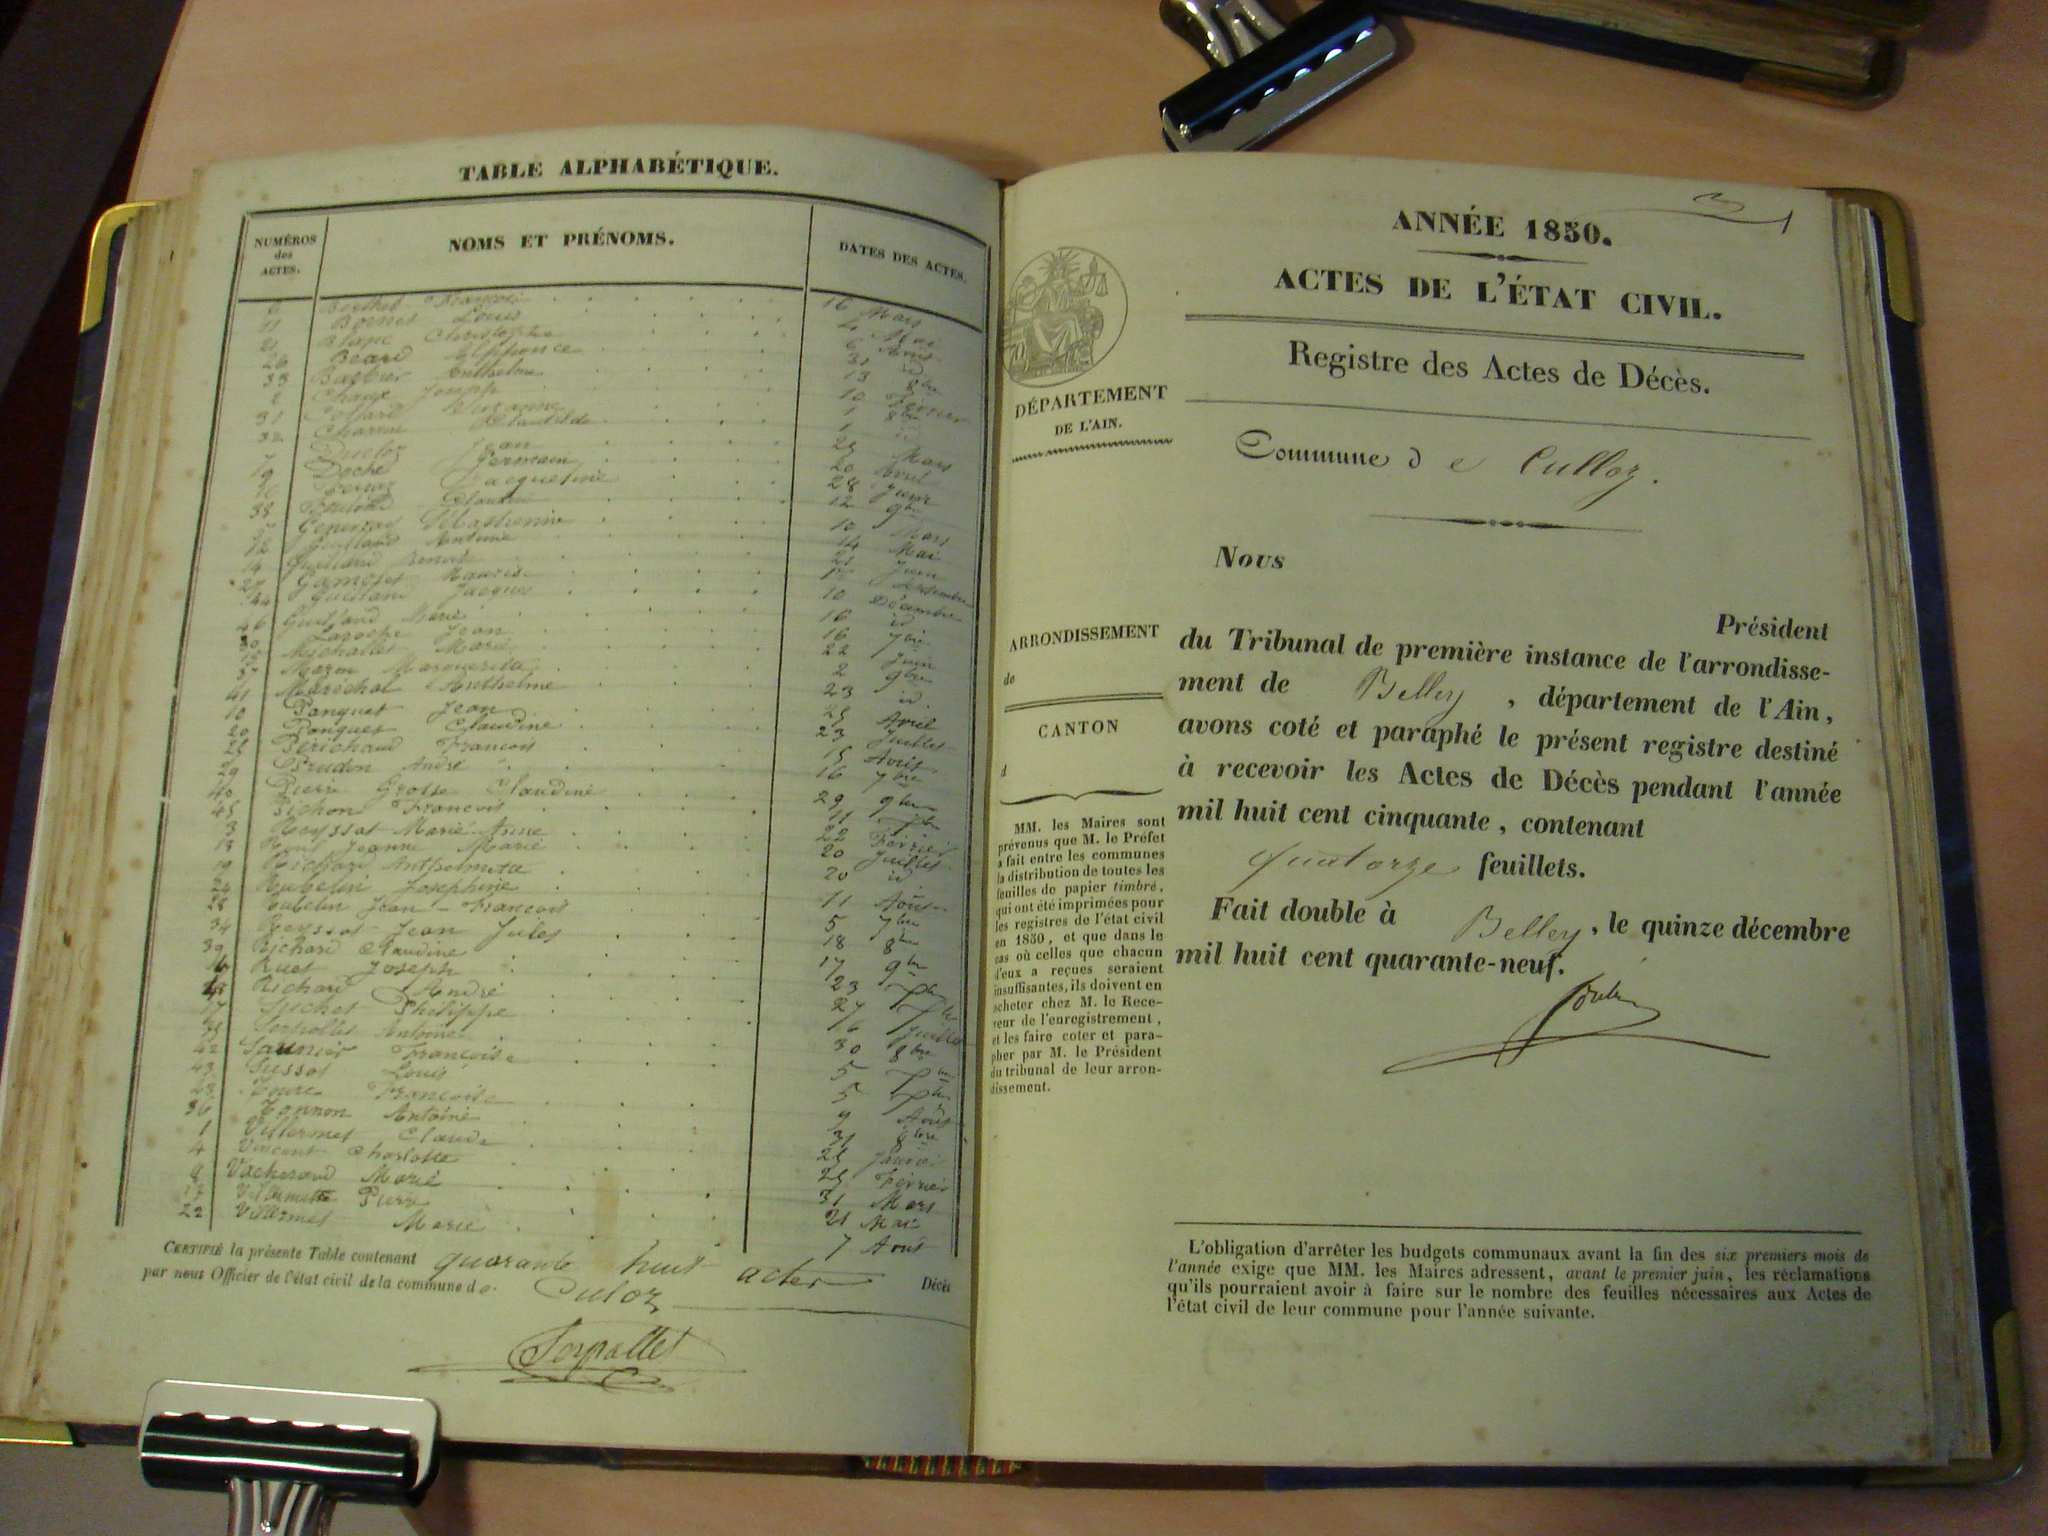 TABLE ALPHABÉTIQUE.
NUMÉROS des ACTES.
NOMS ET PRÉNOMS.
DATES DES ACTES.
6 Berthet François 16 Mars
11 Bornet Louis 4 Mai
21 Blanc Christophe 6 Août
26 Béard Alphonce 31 id
33 Barbier Anthelme 13 8bre
2 Chaux Joseph 10 Février
31 Collard 1 8bre
32 Charvin Clautilde 1 id
7 Ducloz Jean 25 Mars
19 Doche Germain 20
Jacqueline 28
38 Claudine 12 9bre
Sébastienne 10 Mars
12 Guilland Antoine 14 Mai
14 Guilland Benoit 21 Juin
27 Maurice
44 Guilland Jacques 10 Décembre
46 Guilland Marie 16 id
30 Laroche Jean 16 7bre
Michallet Marie 22 Juin
37 Marin Marguerite 2 9bre
41 Maréchal Anthelme 23 id.
10 Ponguet Jean 25 Avril
20 Ponguet Claudine 23 Juillet
25 Périchaud François 15 Août
29 Prudon André 16 7bre
40 Pierre Grosse Claudine
45 Pichon François 11
3 Reyssat Marie Anne 22 Février
18 Jeanne Marie 20 Juillet
19 Richard Anthelmeta 20 id
24 Rubelin Joséphine 11 Août
28 Rubelin Jean-François 5 7bre
34 Reyssat Jean Jules 18 8bre
39 Richard Claudine 17 9bre
Ruet Joseph 23
Richard André 27
17 Suchet Philippe 16 Juillet
35 Serpollet Antoine 30 8bre
42 Saunier Françoise 5
43 Sussot Louis 5
23 Françoise 9 Août
36 Tonnon Antoine 31 8bre
1 Villermet Claude Janvier
4 Vincent Charlotte 25 Février
8 Vacherand Marie 31 Mars
13 Villermet Pierre 21 Mai
22 Villermet Marie 7 Août
CERTIFIÉ la présente Table contenant quarante huit actes Décès
par nous Officier de l'état civil de la commune de Culoz
Serpollet
ANNÉE 1850.
ACTES DE L'ÉTAT CIVIL.
Registre des Actes de Décès.
DÉPARTEMENT
DE L'AIN.
Commune de Culloz.
Nous
Président
du Tribunal de première instance de l'arrondisse-
ment de Belley, département de l'Ain,
avons coté et paraphé le présent registre destiné
à recevoir les Actes de Décès pendant l'année
mil huit cent cinquante, contenant
quatorze feuillets.
Fait double à Belley, le quinze décembre
mil huit cent quarante-neuf.
ARRONDISSEMENT
de
CANTON
d
MM. les Maires sont
prévenus que M. le Préfet
a fait entre les communes
la distribution de toutes les
feuilles de papier timbré,
qui ont été imprimées pour
les registres de l'état civil
en 1850, et que dans le
cas où celles que chacun
d'eux a reçues seraient
insuffisantes, ils doivent en
acheter chez M. le Rece-
veur de l'enregistrement,
et les faire coter et para-
pher par M. le Président
du tribunal de leur arron-
dissement.
L'obligation d'arrêter les budgets communaux avant la fin des six premiers mois de
l'année exige que MM. les Maires adressent, avant le premier juin, les réclamations
qu'ils pourraient avoir à faire sur le nombre des feuilles nécessaires aux Actes de
l'état civil de leur commune pour l'année suivante.